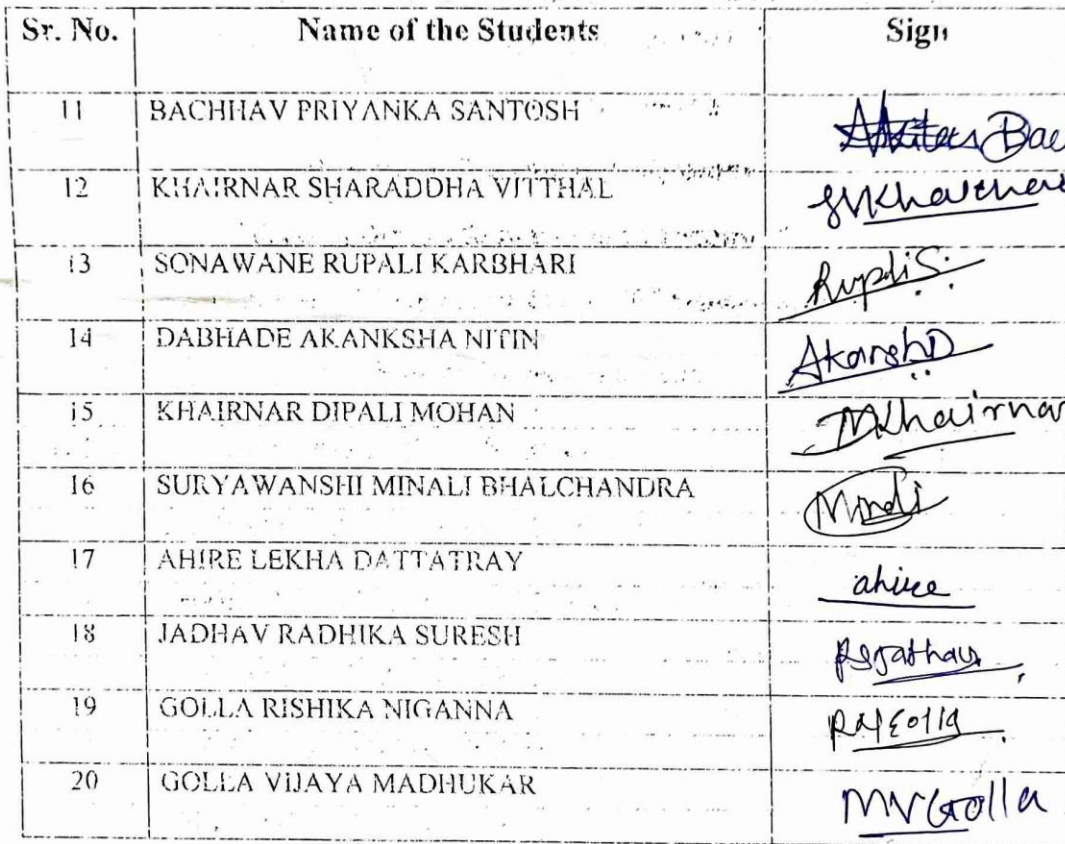 Sr. No. Name of the Students Sign
11 BACHHAV PRIYANKA SANTOSH Bac
12 KHAIRNAR SHARADDHA VITTHAL SVKhairnar
13 SONAWANE RUPALI KARBHARI Rupali S.
14 DABHADE AKANKSHA NITIN AkankshD
15 KHAIRNAR DIPALI MOHAN DMKhairnar
16 SURYAWANSHI MINALI BHALCHANDRA Minali
17 AHIRE LEKHA DATTATRAY ahire
18 JADHAV RADHIKA SURESH RSJadhav
19 GOLLA RISHIKA NIGANNA
20 GOLLA VIJAYA MADHUKAR MVGolla